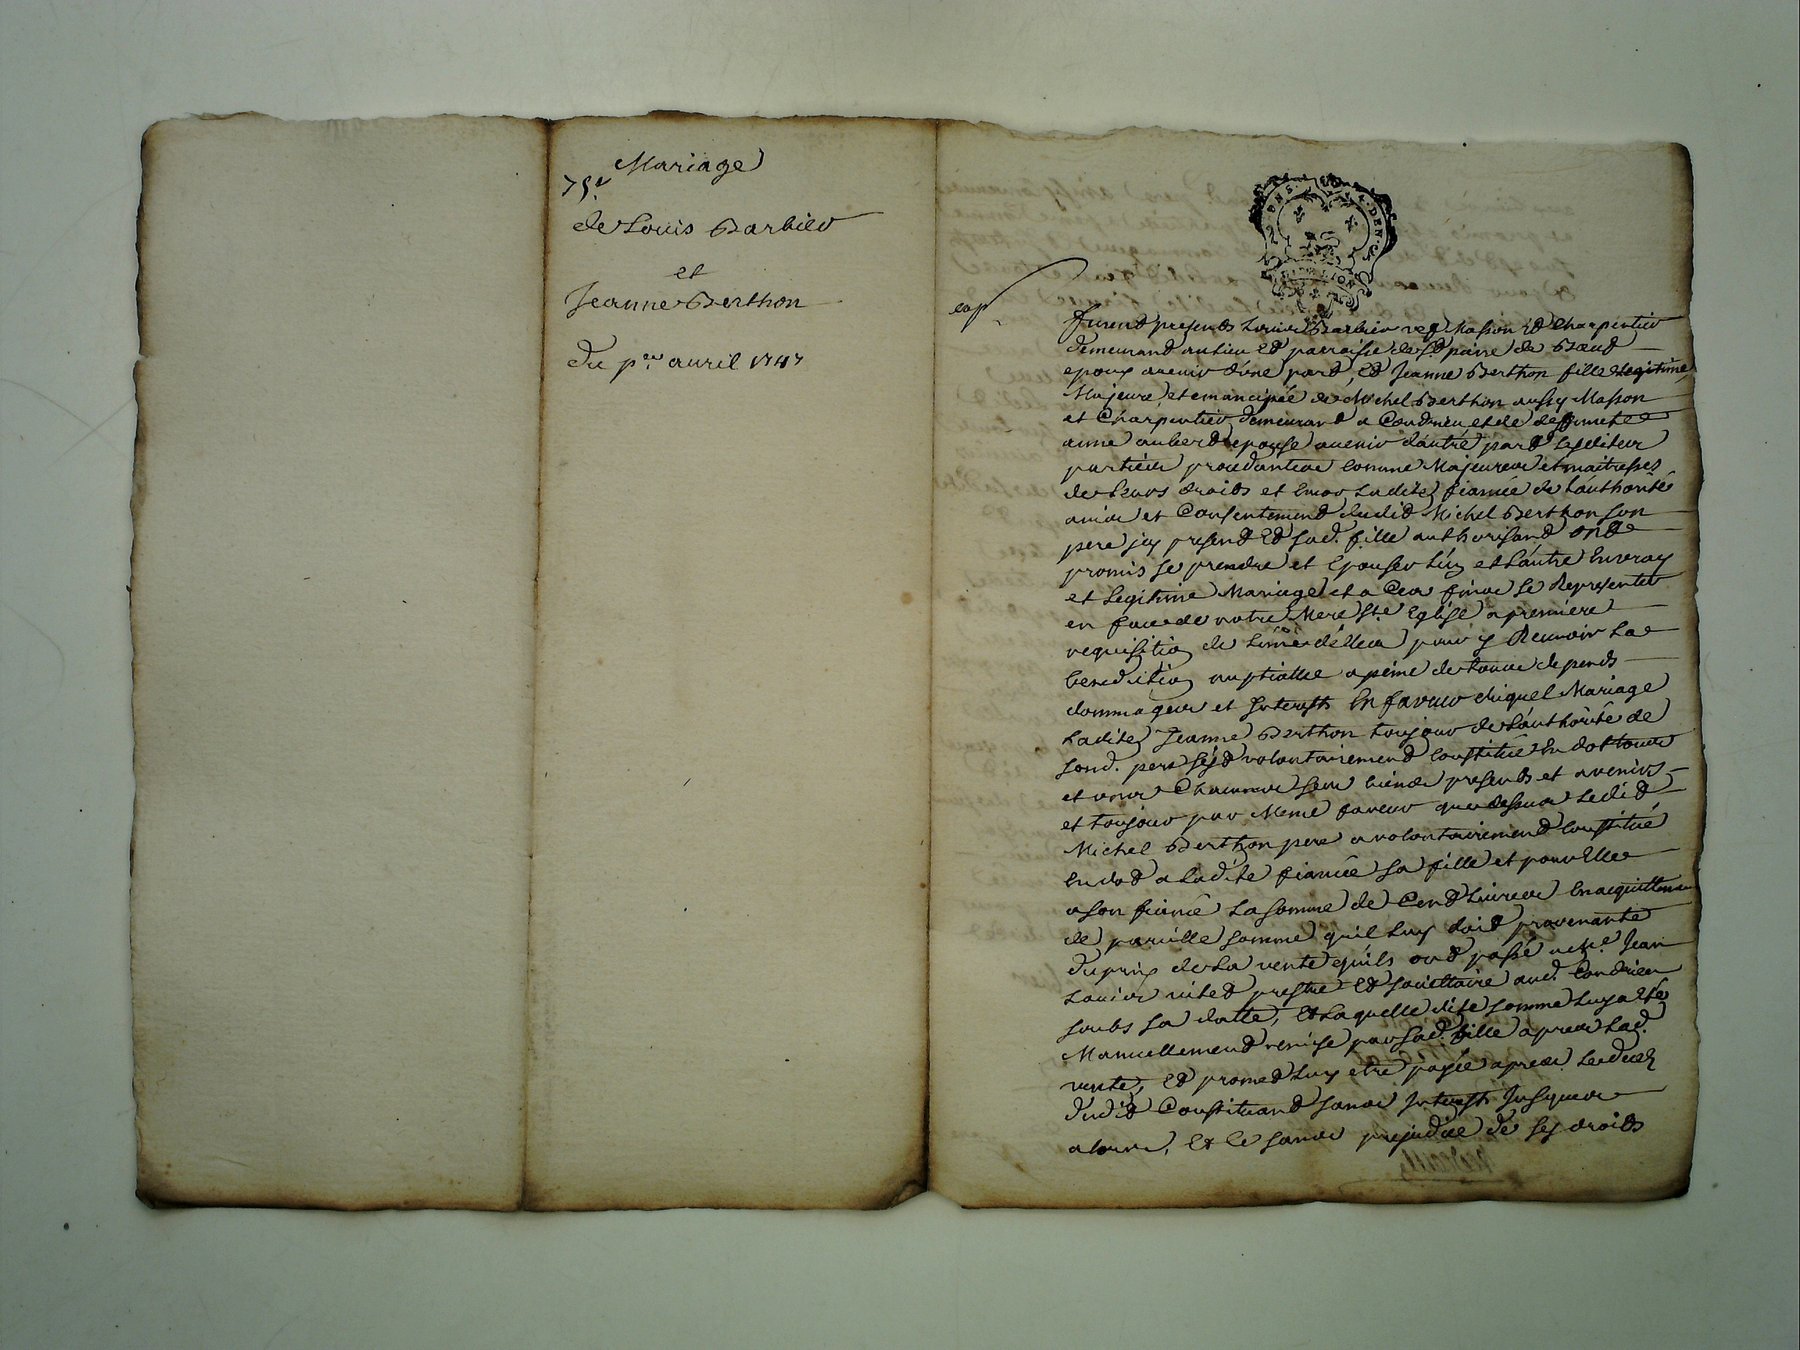 Mariage
75.e
de Louis Barbier
et
Jeanne Berthon
Du p.er avril 1747
exp.
GENERALITE DE LION
furent presents Louis Barbier Masson Et Charpentier
demeurant au lieu Et parroisse de St. pierre de Bœuf
epoux avenir d'une part, Et Jeanne Berthon fille Legitime
Majeure et emancipée de Michel Berthon aussy Masson
et Charpentier demeurant a Condrieu et de deffuncte
anne aubert epouse avenir d'autre part Lesdites
parties procedantes comme Majeures et maitresses
de leurs droits et Encor Ladite fiancée de L'authorité
avis et Consentement dudit Michel Berthon son
pere icy present Et sad. fille authorisant ont
promis se prendre et Epouser L'un et L'autre En vray
et Legitime Mariage et a Ces fins se Representer
en face de notre Mere Ste. Eglise a premiere
requisition de L'un d'Eux pour y Recevoir La
benediction nuptialle a peine de tous depends
dommages et Interests En faveur duquel Mariage
Ladite Jeanne Berthon toujour de L'authorité de
sond. pere s'est volontairement Constitué En dot tous
et uns Chacuns ses biens presents et avenirs
et toujour par Meme faveur que dessus Ledit
Michel Berthon pere a volontairement Constitué
En dot a Ladite fiancée sa fille et pour Elle
a son fiancé La somme de Cent Livres En acquittement
de pareille somme qu'il Luy doit provenante
du prix de La vente qu'ils ont passé a Me. Jean
Louis prestre Et societtaire aud. Condrieu
soubs sa datte, Et Laquelle dite somme Luy a Eté
Manuellement remise par sad. fille apres Lad.
vente, Et promet Luy etre payée apres Le deces
dudit Constituant sans Interests Jusques
alors, Et Ce sans prejudice de ses droits